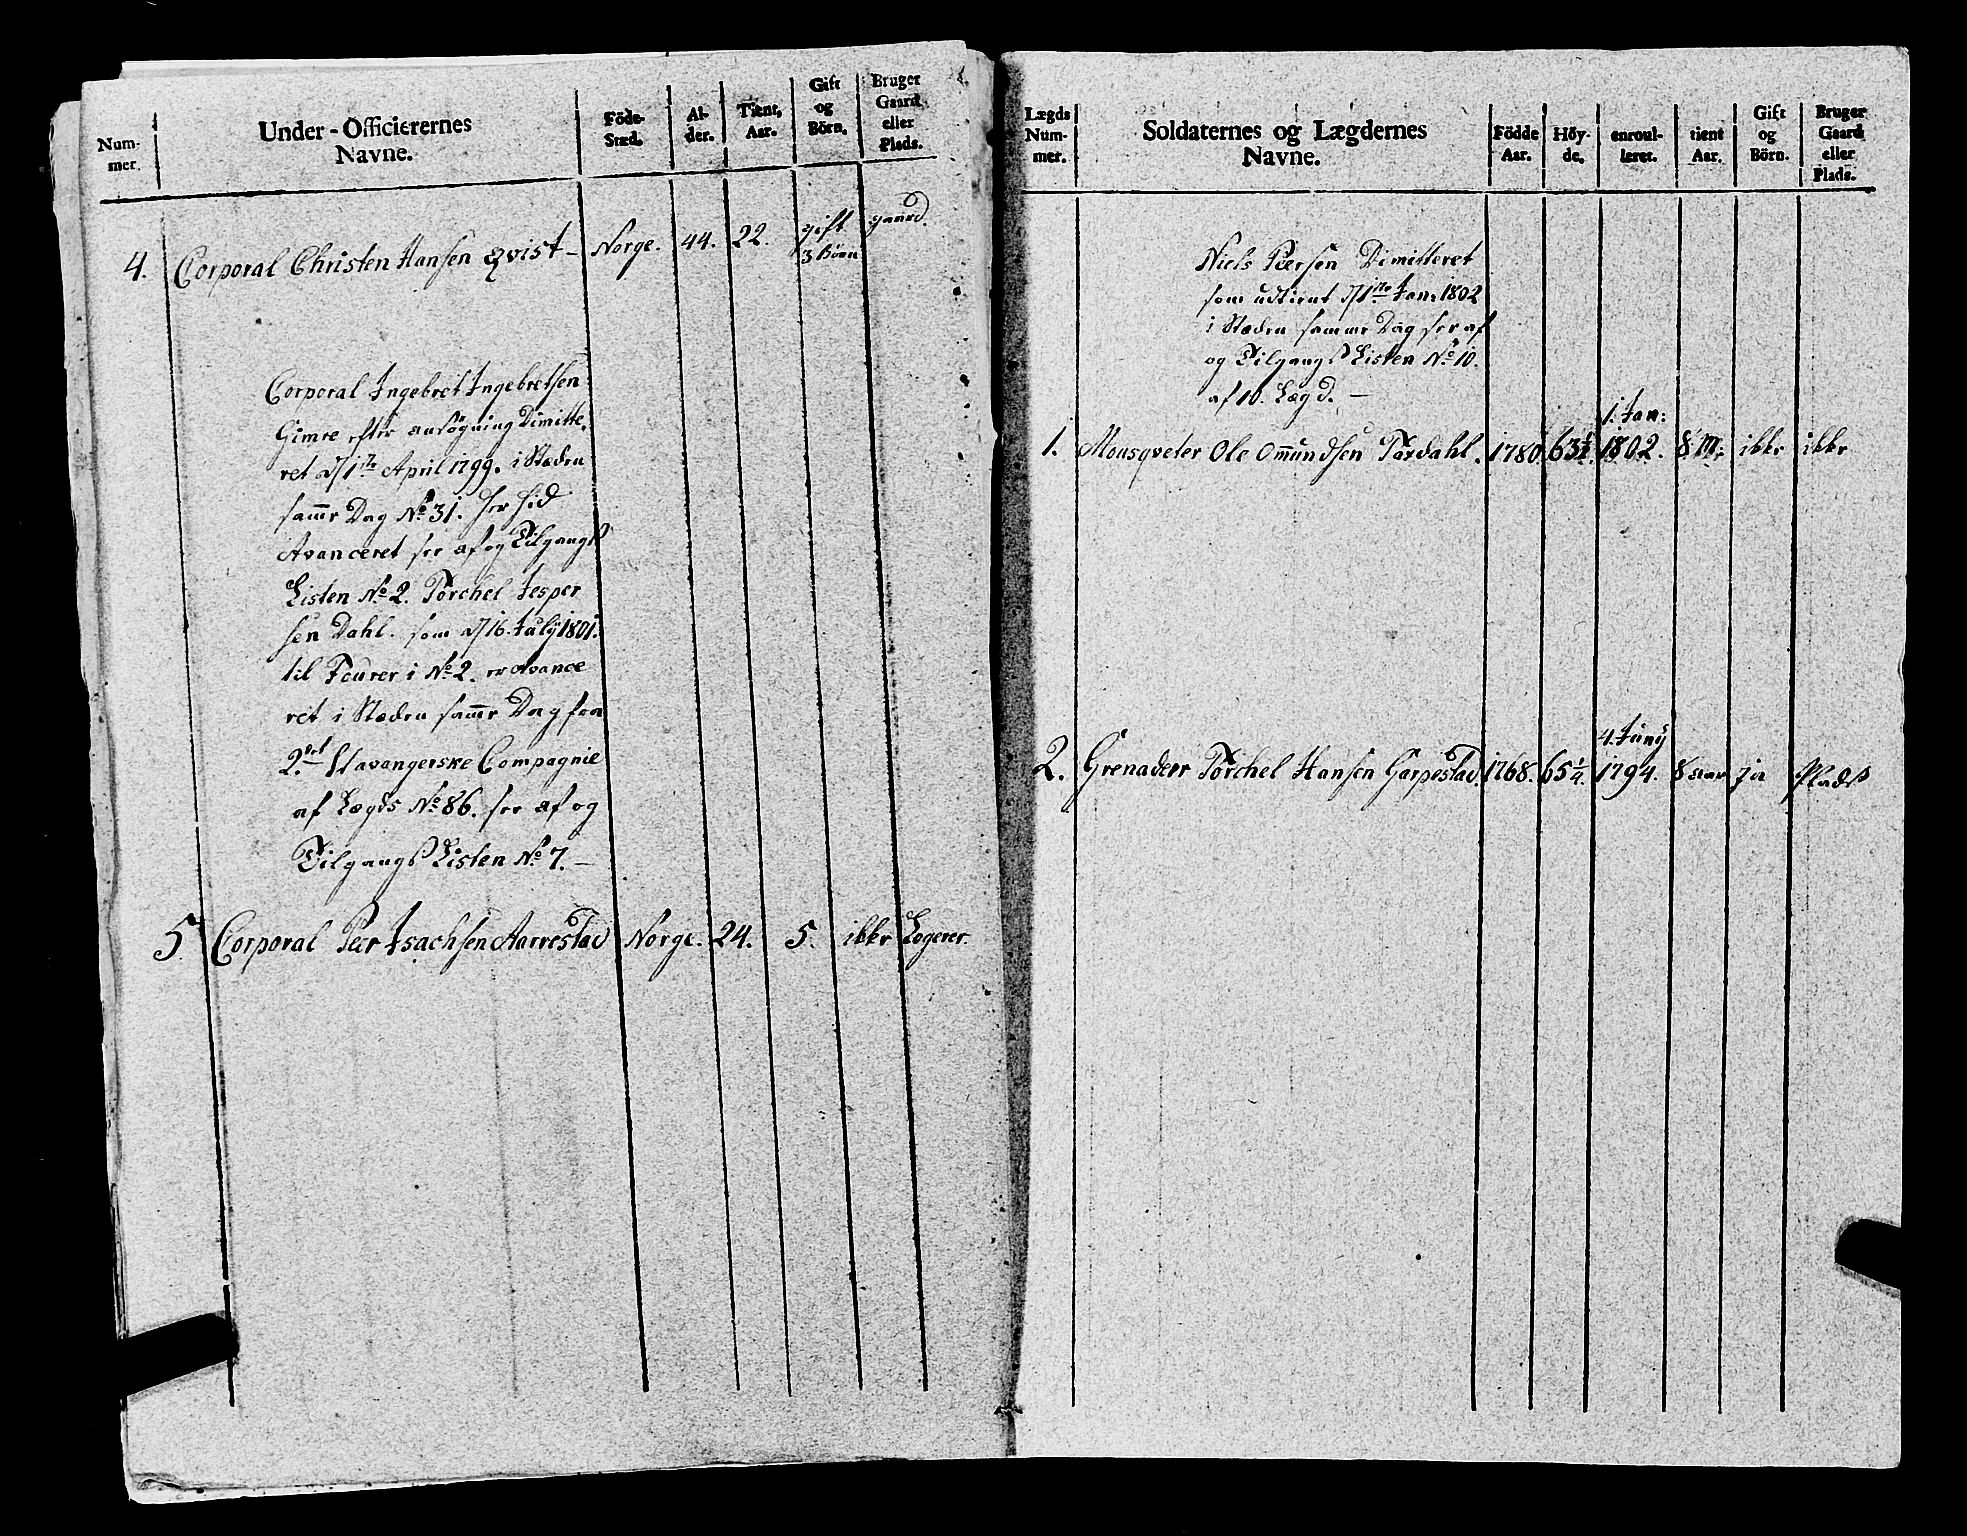 Num-
mer.
Under-Officierernes
Navne.
Föde-
Stæd.
Al-
der.
Tient,
Aar.
Gift
og
Börn.
Bruger
Gaard
eller
Plads.
4. Corporal Christen Hansen Qvist - Norge. 44. 22. gift
3 Börn gaard.
Corporal Ingebret Ingebretsen
Gimre efter ansøgning Dimitte,
ret d 1te April 1799. i Stæden
samme Dag No 31. her hid
Avanceret see af og Tilgangs
Listen No 2. Torchel Jesper
sen Dahl. som d 16. July 1801.
til Fourer i No 2. er Avance
ret i Stæden samme Dag fra
2det Stavangerske Compagnie
af Lægds No 86. see af og
Tilgangs Listen No 7. -
5. Corporal Peer Isachsen Aarrestad Norge. 24. 5. ikke Logerer.
Lægds
Num-
mer.
Soldaternes og Lægdernes
Navne.
Födde
Aar.
Höy-
de.
enroul-
leret.
tient
Aar.
Gift
og
Börn.
Bruger
Gaard
eller
Plads.
Niels Peersen Dimitteret
som udtient d 1te Jan: 1802
i Stæden samme Dag see af
og Tilgangs Listen No 10.
af 10. Lægd. -
1. Jan:
1. Mousqveter Ole Omundsen Tordahl. 1780. 63½. 1802. 8 M: ikke ikke
4. Juny
2. Grenadeer Torchel Hansen Garpestad. 1768. 65¼. 1794. 8 aar ja Plads